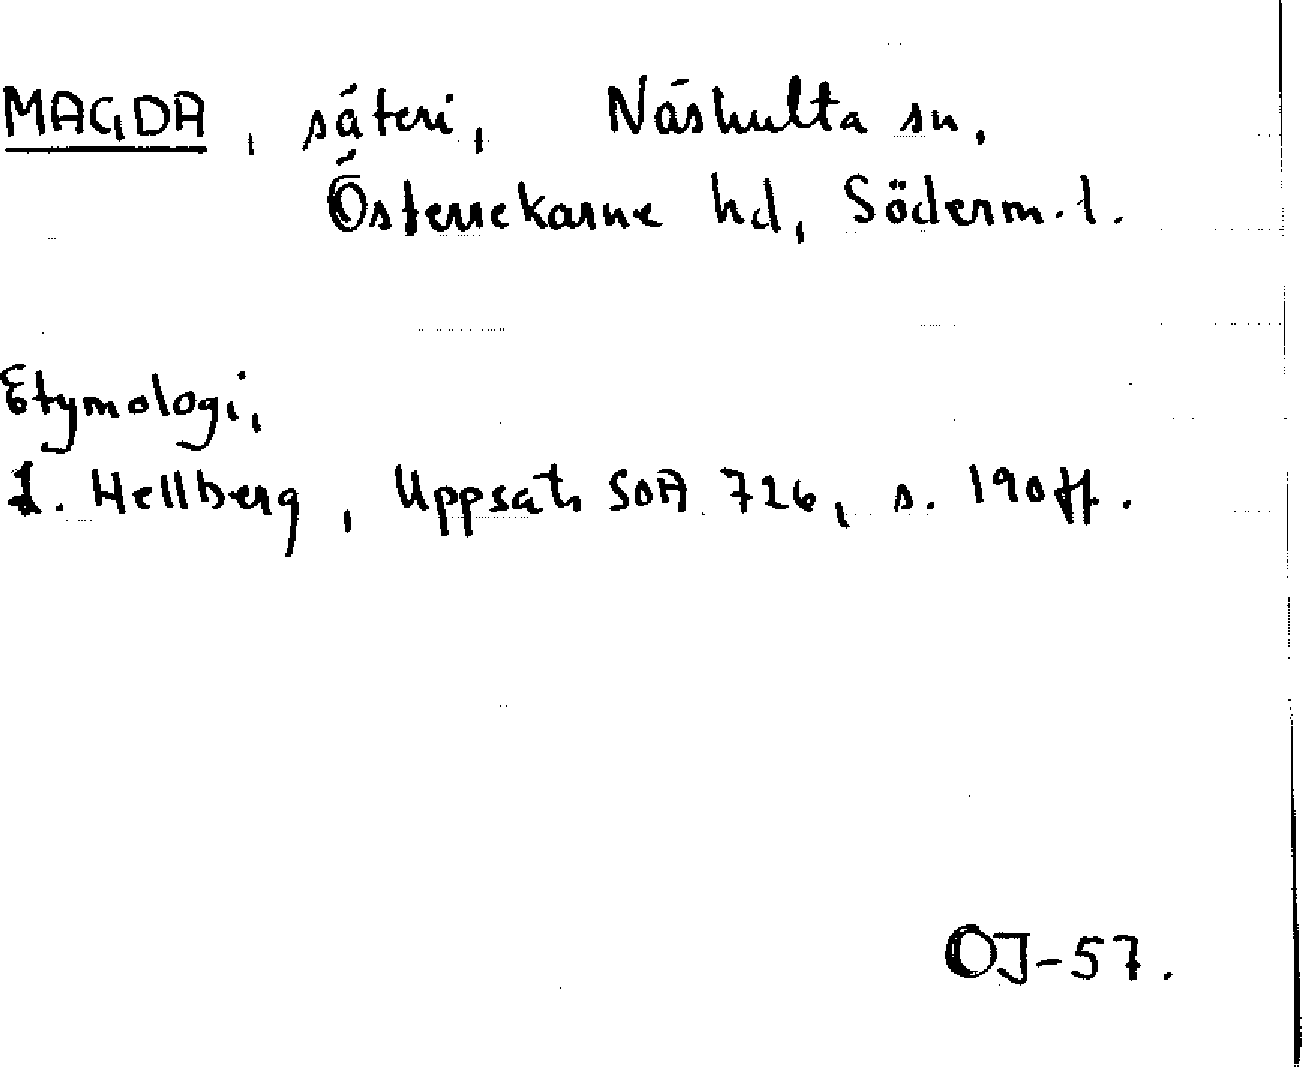 MAGDA, säteri, Näshulta sn,
Österrekarne hd, Söderm.l.
Etymologi,
L. Hellberg, Uppsats SOA 726, s. 190 ff.
OJ-57.